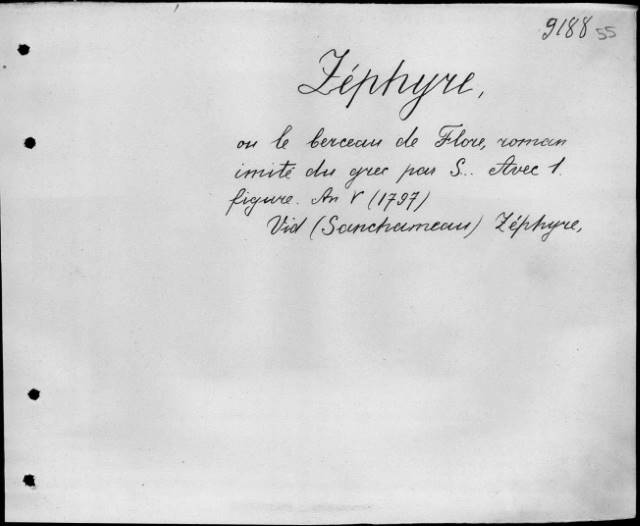 9188 55
Zéphyre,
ou le berceau de Flore, roman
imité du grec par S.. Avec 1.
figure. An V (1797)
Vid (Sanchameau) Zéphyre,